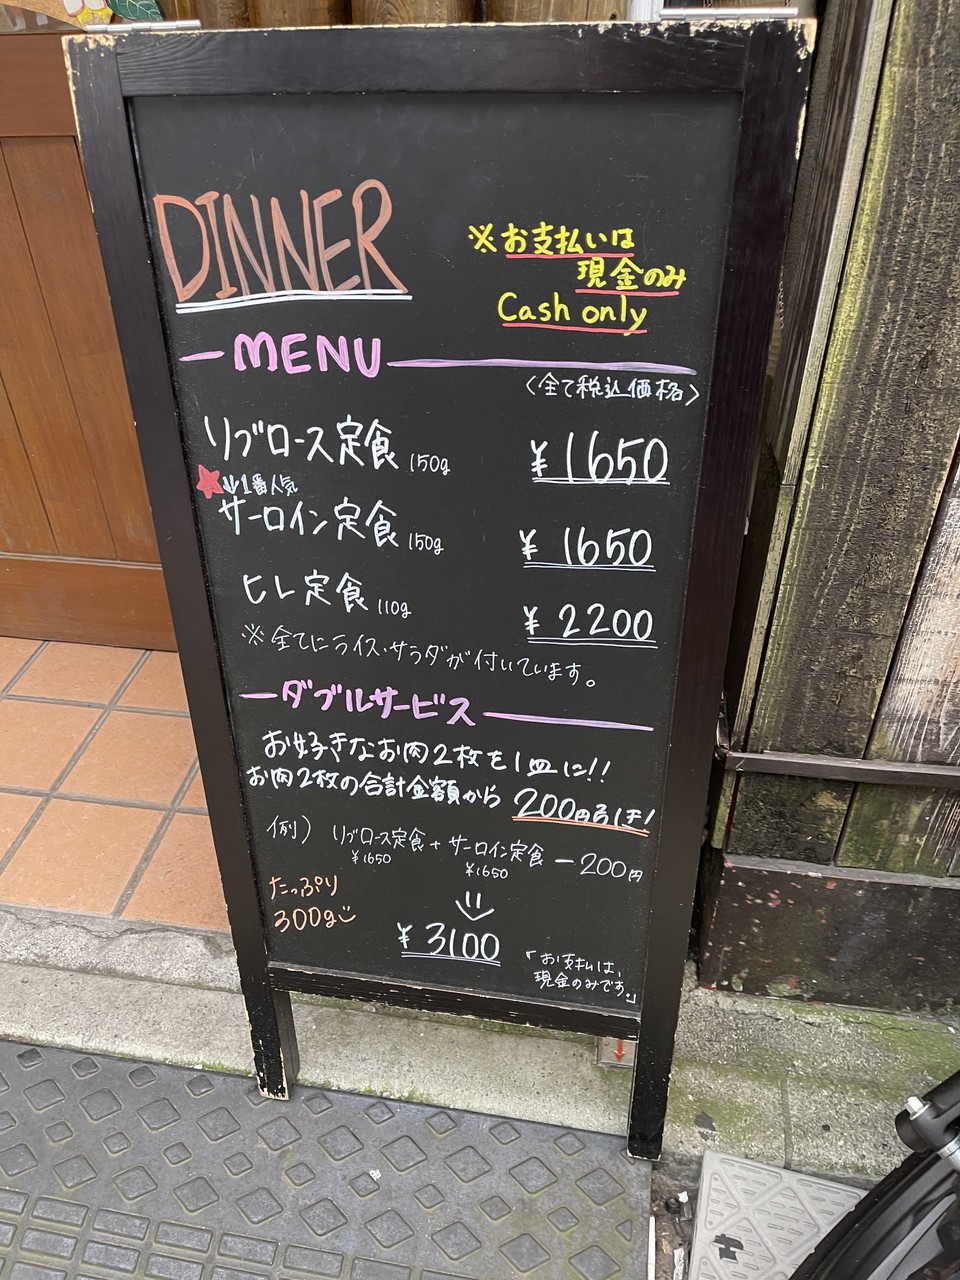 DINNER
※お支払いは
現金のみ
Cash only
MENU
〈全て税込価格〉
リブロース定食 150g ¥1650
1番人気
サーロイン定食 150g ¥1650
ヒレ定食 110g ¥2200
※全てにライス・サラダが付いています。
ダブルサービス
お好きなお肉2枚を1皿に!!
お肉2枚の合計金額から 200円引き!
例) リブロース定食 + サーロイン定食 -200円
¥1650 ¥1650
たっぷり
300g
¥3100
「お支払は、
現金のみです。」